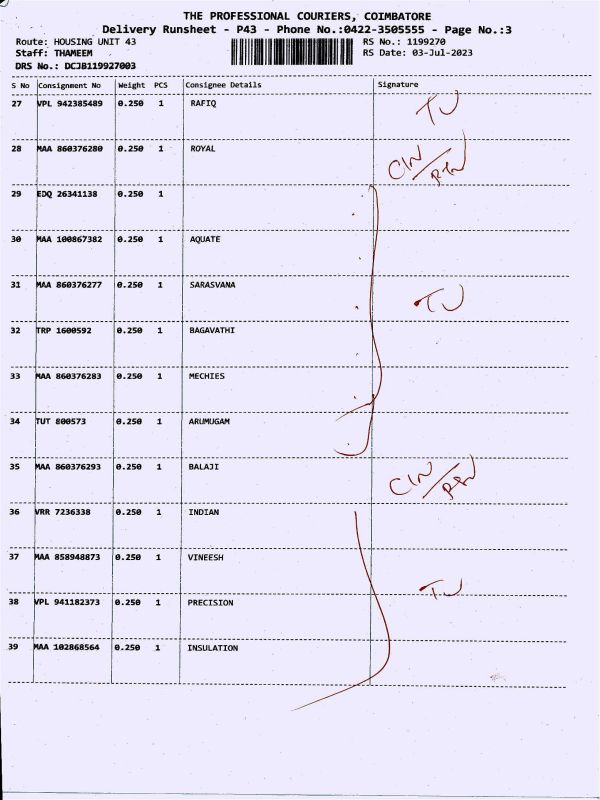 THE PROFESSIONAL COURIERS, COIMBATORE
Delivery Runsheet - P43 - Phone No.:0422-3505555 - Page No.:3
Route: HOUSING UNIT 43 RS No.: 1199270
Staff: THAMEEM RS Date: 03-Jul-2023
DRS No.: DCJB119927003
S No Consignment No Weight PCS Consignee Details Signature
27 VPL 942385489 0.250 1 RAFIQ TU
28 MAA 860376280 0.250 1 ROYAL CIN/RTN
29 EDQ 26341138 0.250 1
30 MAA 100867382 0.250 1 AQUATE
31 MAA 860376277 0.250 1 SARASVANA TU
32 TRP 1600592 0.250 1 BAGAVATHI
33 MAA 860376283 0.250 1 MECHIES
34 TUT 800573 0.250 1 ARUMUGAM
35 MAA 860376293 0.250 1 BALAJI CIN/RTN
36 VRR 7236338 0.250 1 INDIAN
37 MAA 858948873 0.250 1 VINEESH
38 VPL 941182373 0.250 1 PRECISION TU
39 MAA 102868564 0.250 1 INSULATION